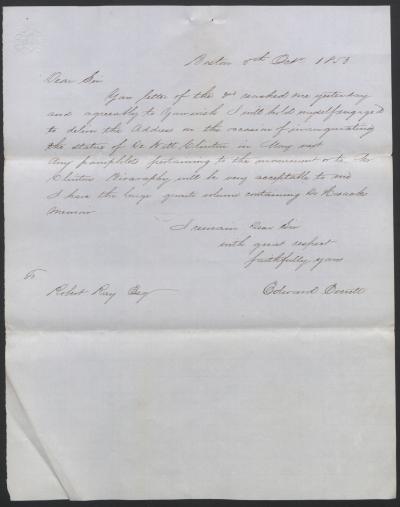 Boston 8th Oct. 1850
Dear Sir
Your letter of the 3d reached me yesterday
and agreeably to your wish I will hold myself engaged
to deliver the Address on the occasion of inaugurating
the statue of De Witt Clinton in May next
Any pamphlets pertaining to the monument or to Mr
Clintons Biography will be very acceptable to me
I have the large quarto volume containing Dr Hosacks
Memoir
I remain Dear Sir
with great respect
faithfully yours
Edward Everett
To
Robert Ray Esq